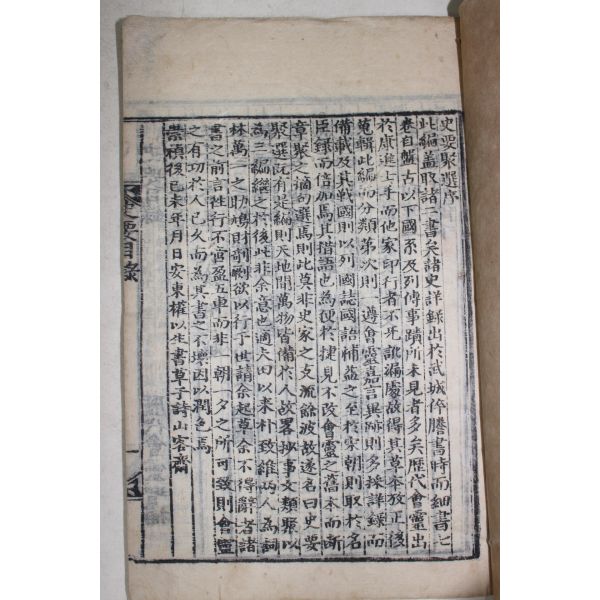 史要聚選序
此編盖取諸二書矣諸史詳錄出於武城倅謄書時而細書七
卷自盤古以下國系及列傳事蹟所未見者多矣歷代會靈出
於康進士手而他家印行者不死訛漏處故得其草本攷正後
蒐輯此編而分類第次則一遵會靈嘉言異跡則多採詳錄而
備載及其戰國則以列國誌國語補益之至於宋朝則取於名
臣錄而倍加焉其措語也為便於捷見不改會靈之舊本而斷
章聚之摘句選焉則此莫非史家之支流餘波故遂名曰史要
聚選旣有是編則天地間萬物皆備於人故畧抄事文類聚以
為三編繼之於後此非余意也適大田以來朴致維兩人為詞
林萬一之助鳩財剞劂欲以行于世請余起草余不得辭者諸
書之前言性行不啻盈五車而非一朝一夕之所可致則會靈
之有功於人已久而為其書之不壞因以潤色焉
崇禎後己未年月日安東權以生書草子詩山客齋
史要目錄
一